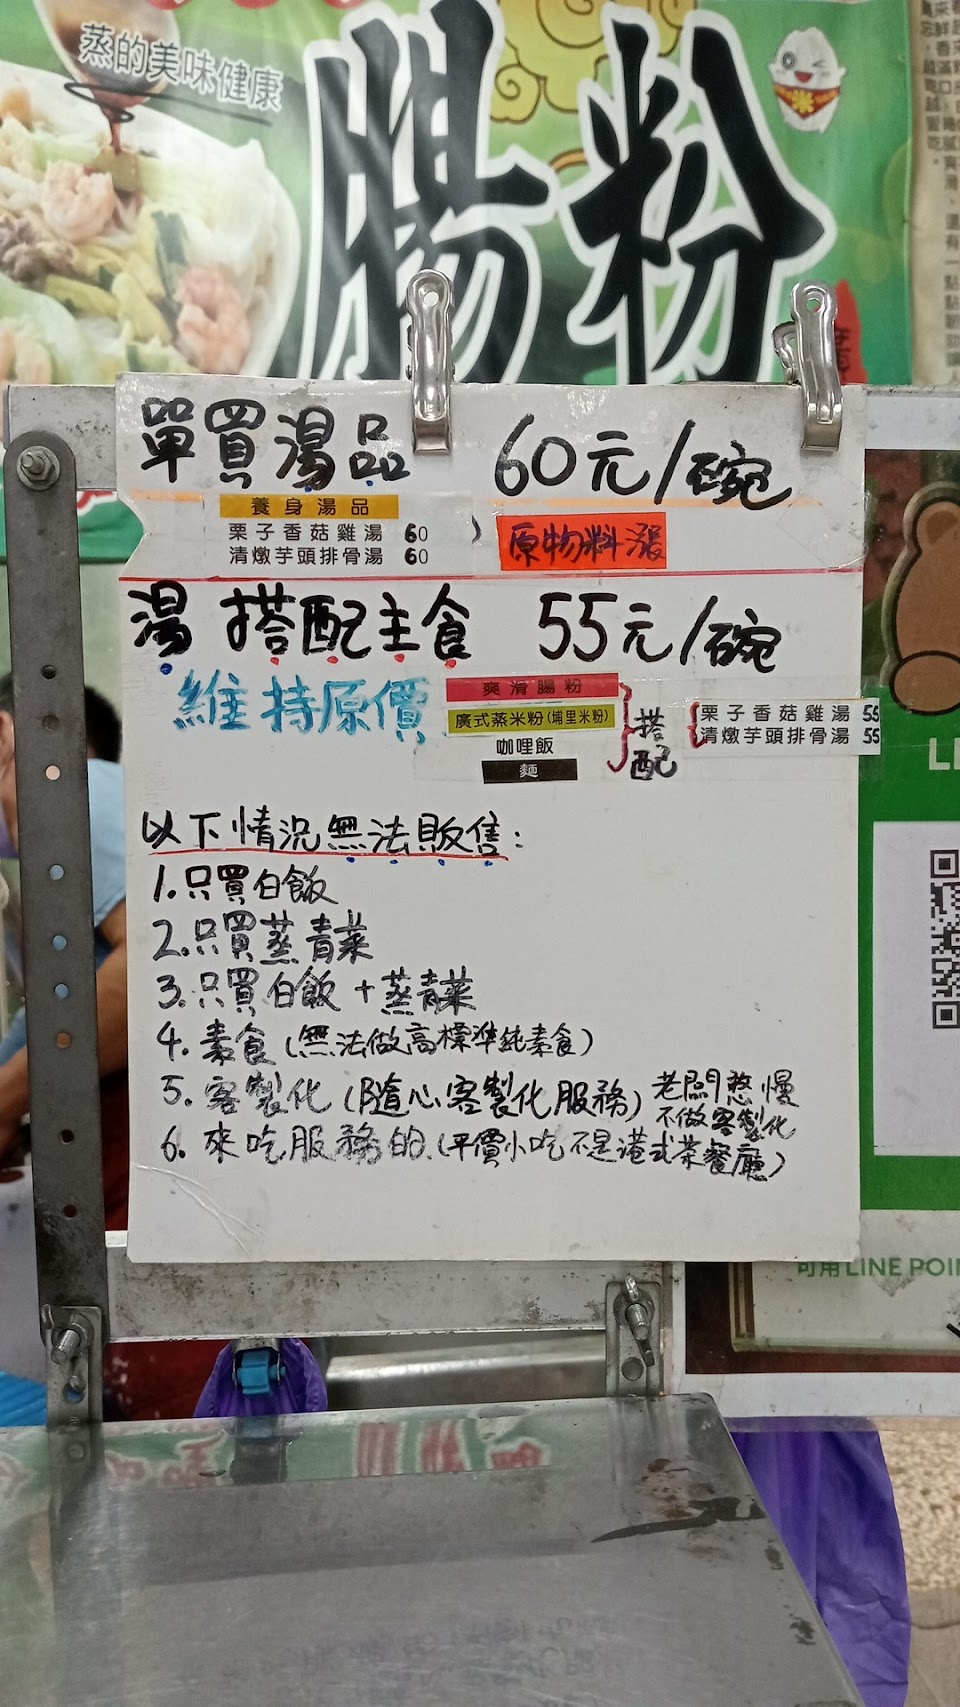 蒸的美味健康
腸粉
米
單買湯品 60元/碗
養身湯品
栗子香菇雞湯 60
清燉芋頭排骨湯 60
原物料漲
湯搭配主食 55元/碗
維持原價
爽滑腸粉
廣式蒸米粉(埔里米粉)
咖哩飯
麵
搭配
栗子香菇雞湯 55
清燉芋頭排骨湯 55
以下情況無法販售:
1.只買白飯
2.只買蒸青菜
3.只買白飯+蒸青菜
4.素食(無法做高標準純素食)
5.客製化(隨心客製化服務)老闆憨慢
不做客製化
6.來吃服務的.(平價小吃不是港式茶餐廳)
可用LINE POIN